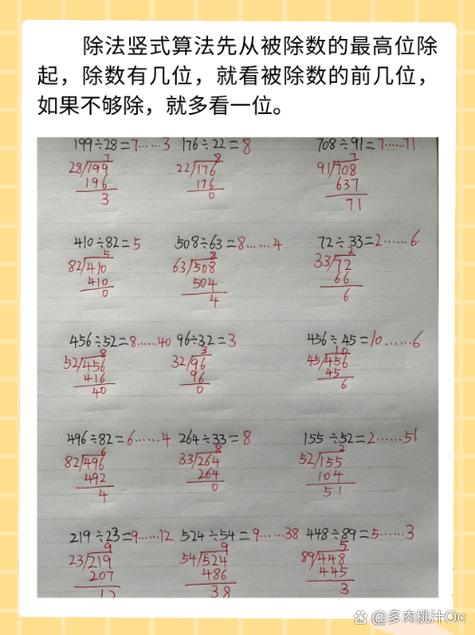 除法竖式算法先从被除数的最高位除
起，除数有几位，就看被除数的前几位，
如果不够除，就多看一位。
199÷28=7……3 176÷22=8 708÷91=7……71
7 8 7
28/199 22/176 91/708
196 176 637
3 0 71
410÷82=5 508÷63=8……4 72÷33=2……6
5 8 2
82/410 63/508 33/72
410 504 66
0 4 6
456÷52=8……40 96÷32=3 456÷45=10……6
8 3 10
52/456 32/96 45/456
416 96 45
40 0 6
496÷82=6……4 264÷33=8 155÷52=2……51
6 8 2
82/496 33/264 52/155
492 264 104
4 0 51
219÷23=9……12 524÷54=9……38 448÷89=5……3
9 9 5
23/219 54/524 89/448
207 486 445
12 38 3
@多肉桃汁Oc